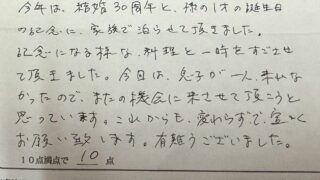 今年は、結婚30周年と、孫の1才の誕生日
の記念に、家族で泊らせて頂きました。
記念になる様な、料理と一時をすごさせ
て頂きました。今回は、息子が一人、来れな
かったので、またの機会に来させて頂こうと
思っています。これからも、変わらずで、宜しく
お願い致します。有難うございました。
10点満点で 10 点